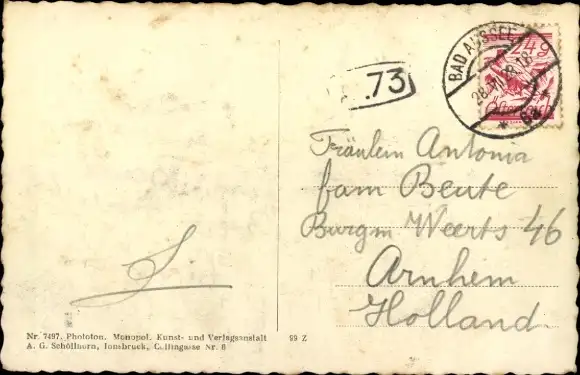 BAD AUSSEE
24g
73
Fräulein Antonia
fam Beute
Burgm Weerts 46
Arnhem
Holland.
Nr. 7497. Phototon. Monopol. Kunst- und Verlagsanstalt
A. G. Schöllhorn, Innsbruck, Nr. 6
99 Z